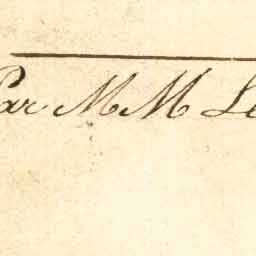 Par MM Le